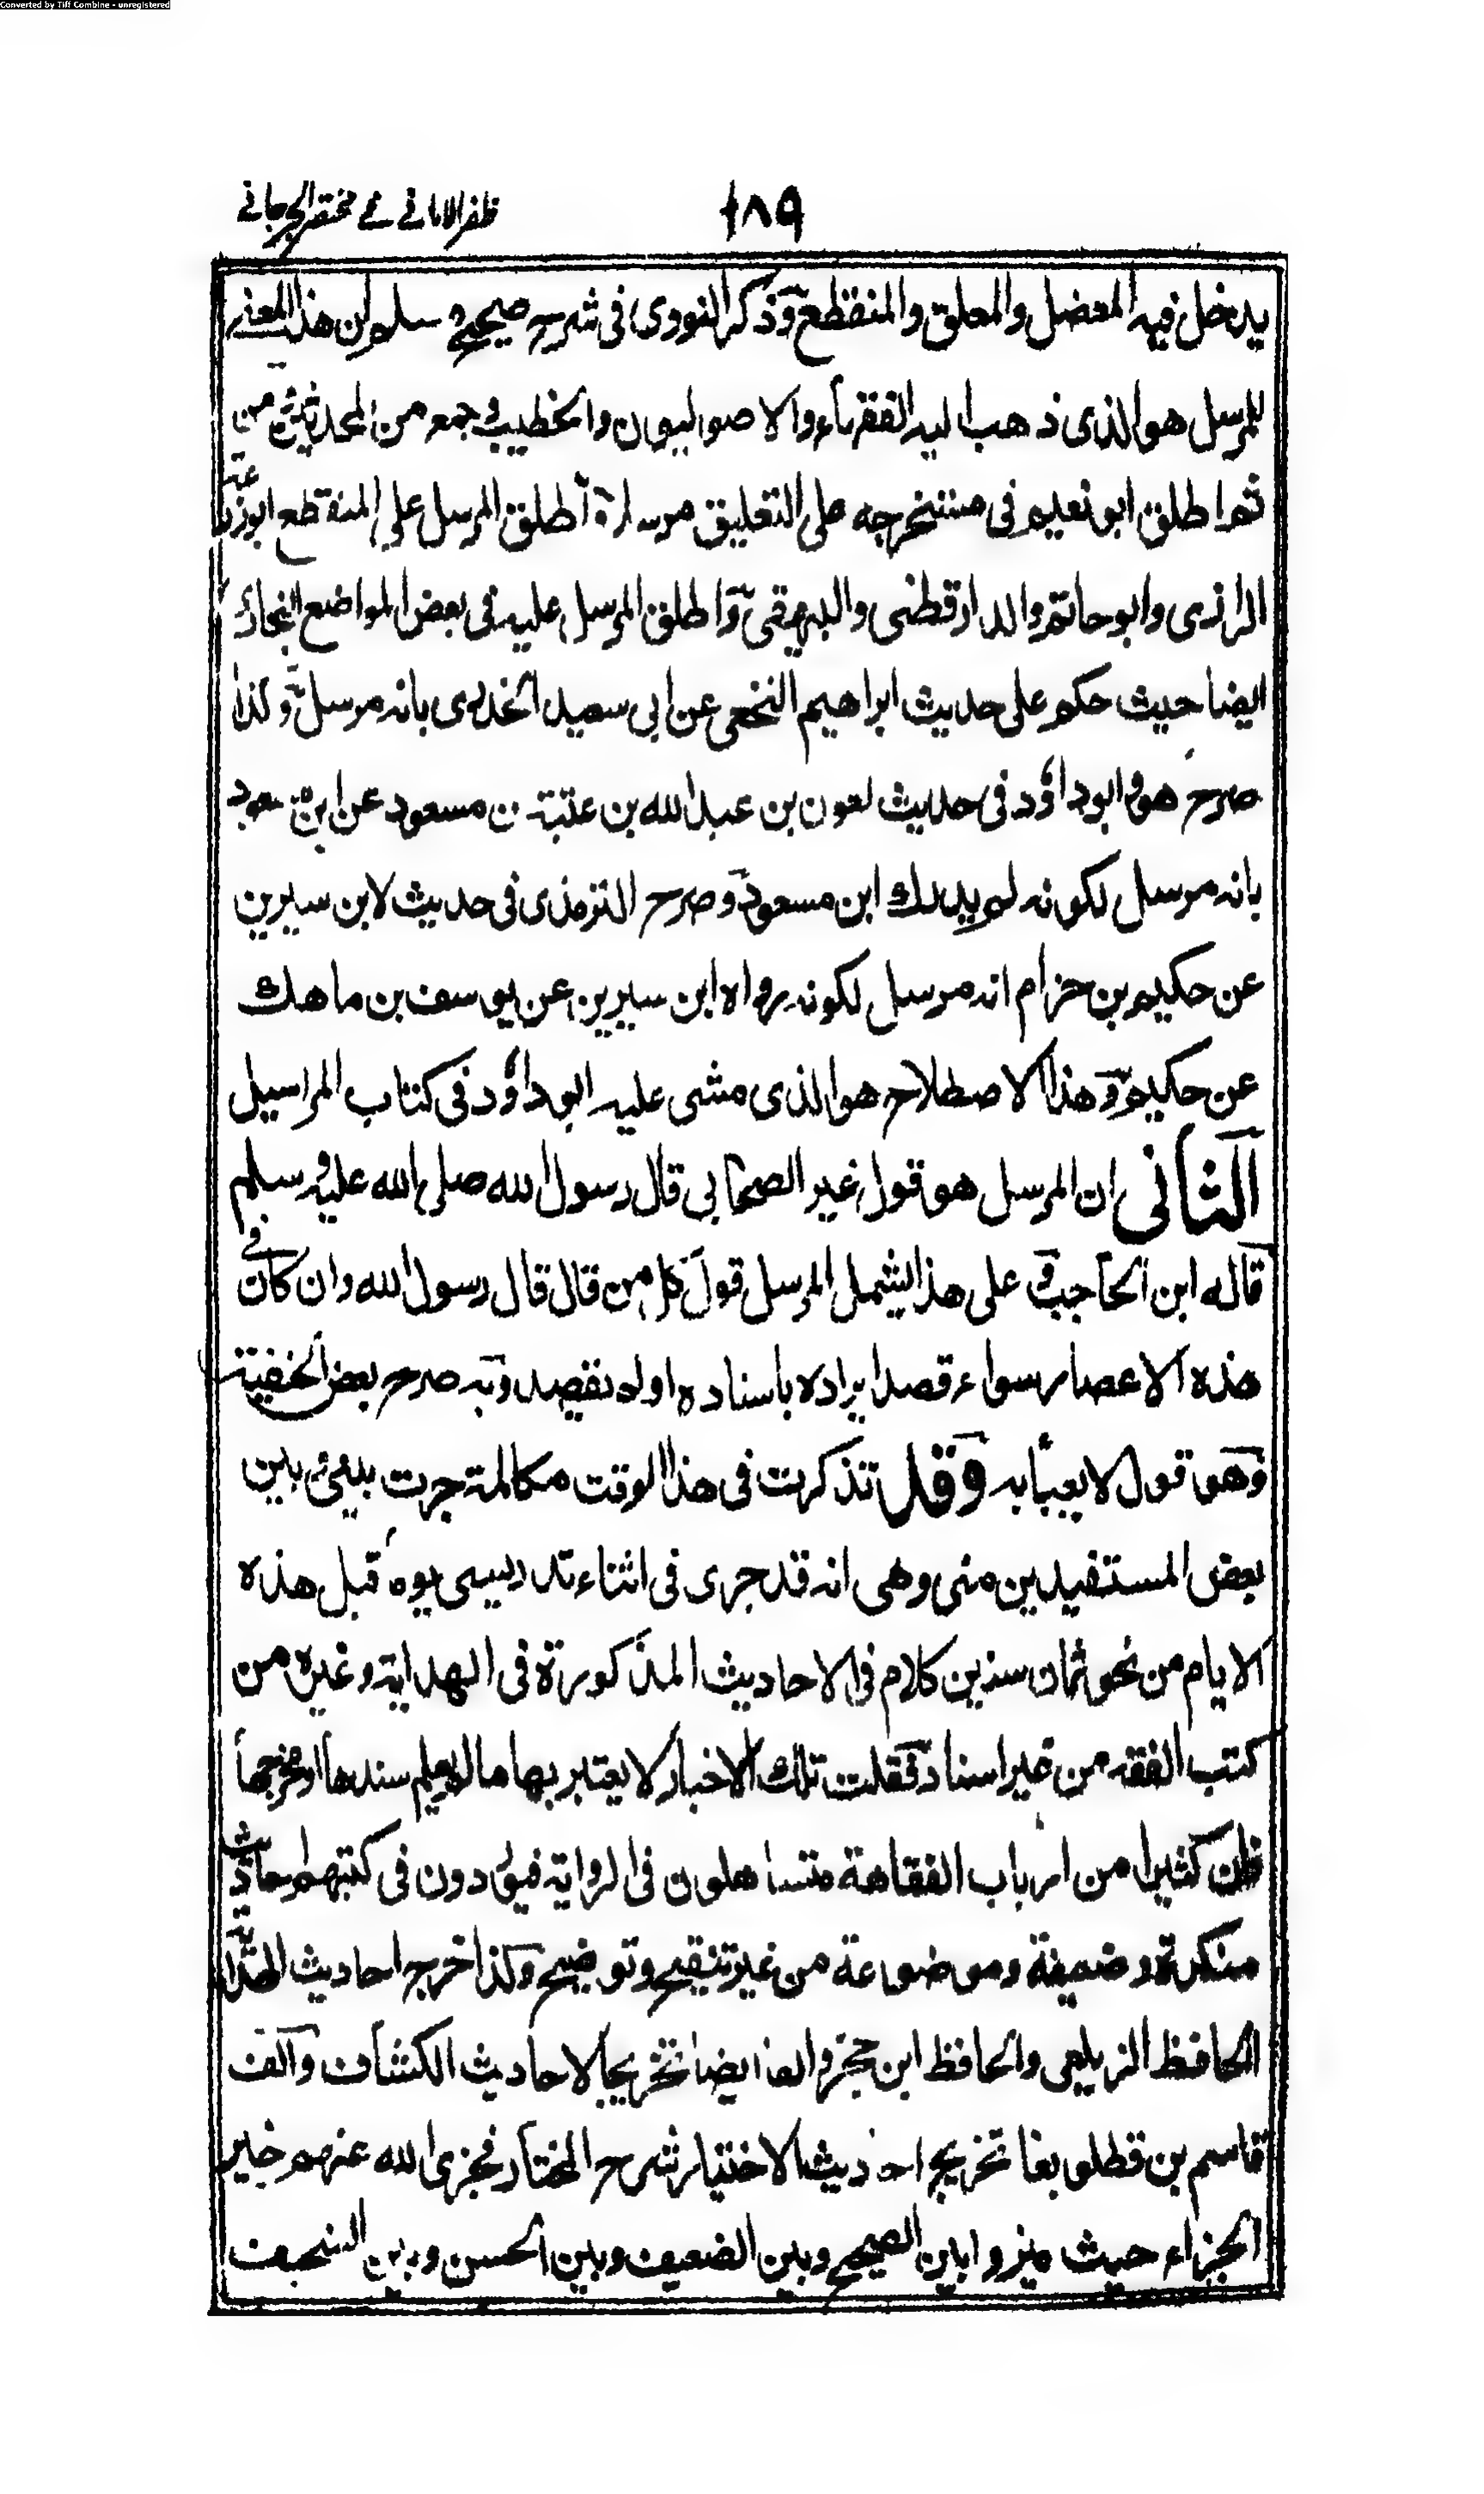 Converted by Tiff Combine - unregistered
١٨٩
ظفر الامانی فی مختصر الجرجانی
يدخل فيه المعضل والمعلق والمنقطع وذكر النووى فى شرح صحيح مسلم ان هذا المعنى
للمرسل هو الذى ذهب اليه الفقهاء والاصوليون والخطيب وجمع من المحدثين ومن
ثم اطلق ابو نعيم فى مستخرجه على التعليق مرسلا واطلق المرسل على المنقطع ابو زرعة
الرازى وابو حاتم والدارقطنى والبيهقى واطلق المرسل عليه فى بعض المواضع البخارى
ايضا حيث حكم على حديث ابراهيم النخعى عن ابى سعيد الخدرى بانه مرسل وكذا
صرح هو وابو داؤد فى حديث لعون بن عبد الله بن عتبة بن مسعود عن ابن مسعود
بانه مرسل لكونه لم يدرك ابن مسعود وصرح الترمذى فى حديث لابن سيرين
عن حكيم بن حزام انه مرسل لكونه رواه ابن سيرين عن يوسف بن ماهك
عن حكيم وهذا الاصطلاح هو الذى مشى عليه ابو داؤد فى كتاب المراسيل
الثانى ان المرسل هو قول غير الصحابى قال رسول الله صلى الله عليه وسلم
قاله ابن الحاجب وعلى هذا يشمل المرسل قول كل من قال قال رسول الله وان كان فى
هذه الاعصار سواء قصد ايراده باسناده او لم يقصد وبه صرح بعض الحنفية
وهو قول لا يعبأ به وقد تذكرت فى هذا الوقت مكالمة جرت بينى وبين
بعض المستفيدين منى وهى انه قد جرى فى اثناء تدريسى يوما قبل هذه
الايام من نحو ثمان سنين كلام فى الاحاديث المذكورة فى الهداية وغيره من
كتب الفقه من غير اسناد فقلت تلك الاخبار لا يعتبر بها ما لم يعلم سندها او مخرجها
فان كثيرا من ارباب الفقاهة متساهلون فى الرواية فيوردون فى كتبهم احاديث
منكرة وضعيفة وموضوعة من غير تنقيح وتوضيح وكذا خرج احاديث الهداية
الحافظ الزيلعى والحافظ ابن حجر والفا ايضا تخريجا لاحاديث الكشاف والف
قاسم بن قطلوبغا تخريج احاديث الاختيار شرح المختار فجزى الله عنهم خير
الجزاء حيث ميزوا بين الصحيح وبين الضعيف وبين الحسن وبين